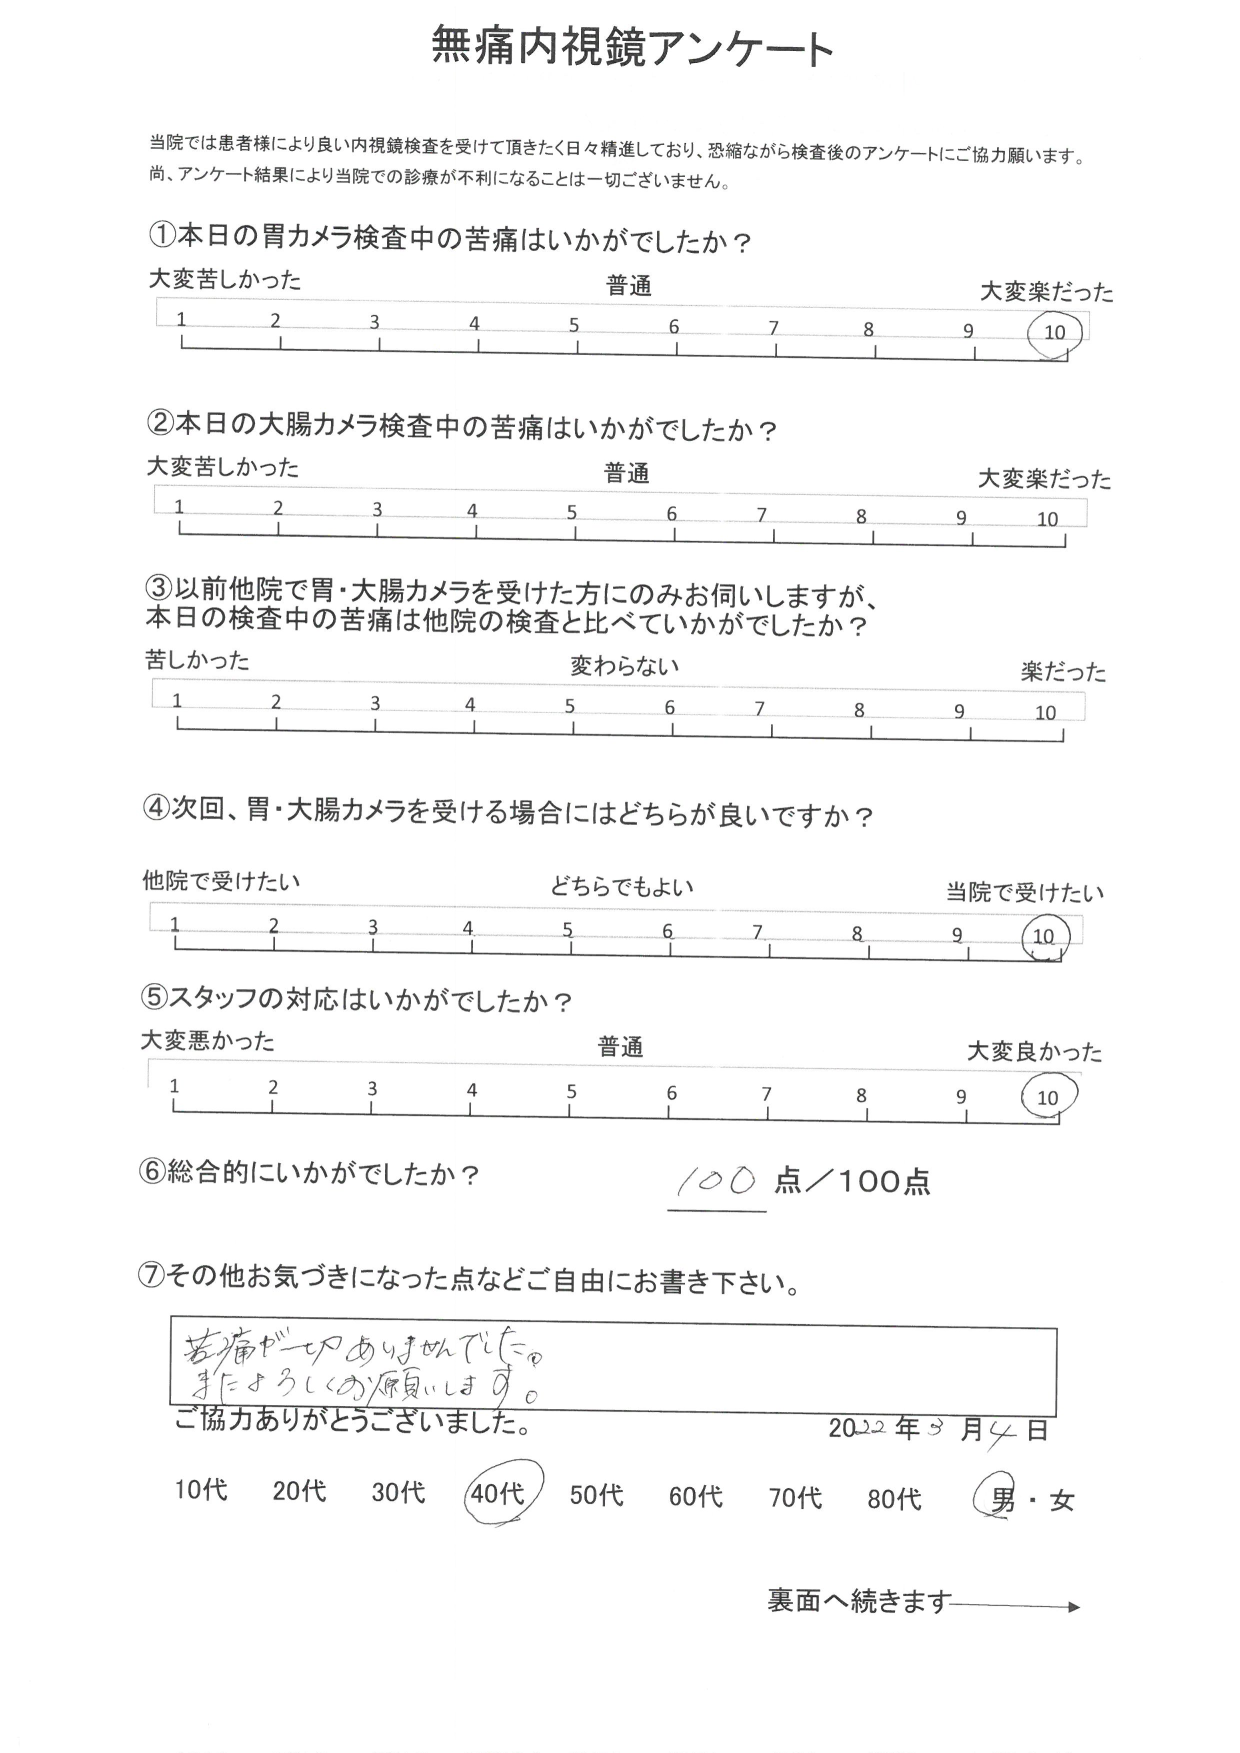 無痛内視鏡アンケート
当院では患者様により良い内視鏡検査を受けて頂きたく日々精進しており、恐縮ながら検査後のアンケートにご協力願います。
尚、アンケート結果により当院での診療が不利になることは一切ございません。
①本日の胃カメラ検査中の苦痛はいかがでしたか？
大変苦しかった 普通 大変楽だった
1 2 3 4 5 6 7 8 9 10
②本日の大腸カメラ検査中の苦痛はいかがでしたか？
大変苦しかった 普通 大変楽だった
1 2 3 4 5 6 7 8 9 10
③以前他院で胃・大腸カメラを受けた方にのみお伺いしますが、
本日の検査中の苦痛は他院の検査と比べていかがでしたか？
苦しかった 変わらない 楽だった
1 2 3 4 5 6 7 8 9 10
④次回、胃・大腸カメラを受ける場合にはどちらが良いですか？
他院で受けたい どちらでもよい 当院で受けたい
1 2 3 4 5 6 7 8 9 10
⑤スタッフの対応はいかがでしたか？
大変悪かった 普通 大変良かった
1 2 3 4 5 6 7 8 9 10
⑥総合的にいかがでしたか？ 100 点／100点
⑦その他お気づきになった点などご自由にお書き下さい。
苦痛が一切ありませんでした。
またよろしくお願いします。
ご協力ありがとうございました。
2022年3月4日
10代 20代 30代 40代 50代 60代 70代 80代 男・女
裏面へ続きます